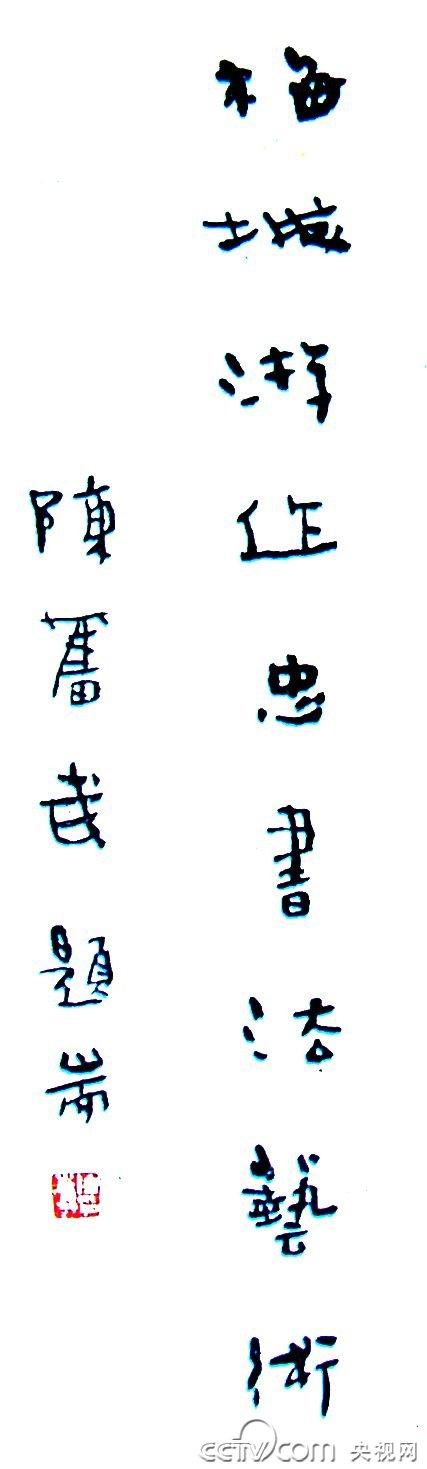 梅城游作忠書法藝術
陳奮武題耑
CCTV.com 央视网